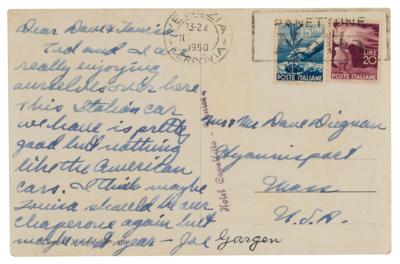 Dear Dave & Louisa
Ted and I are
really enjoying
ourselves over here
This Italian car
we have is pretty
good but nothing
like the American
cars. I think maybe
Louisa should be our
chaperone again but
maybe next year - Joe Gargan
VENEZIA
23-24
1950
FERROVIA
PANETTONE
POSTE ITALIANE
LIRE
20
POSTE ITALIANE
Mr & Mrs Dave Dieguan
Hyannisport
Mass
U.S.A.
Hotel